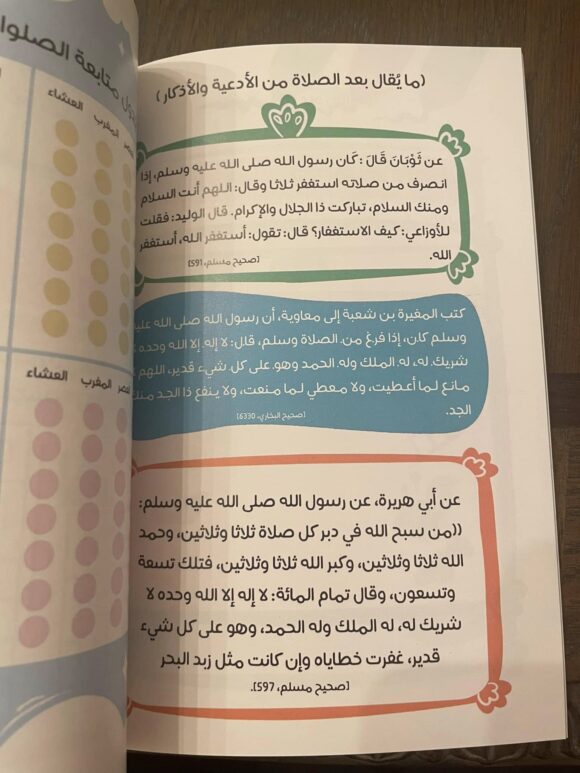 (ما يُقال بعد الصلاة من الأدعية والأذكار)
عن ثَوْبَانَ قَالَ: كَان رسول الله صلى الله عليه وسلم، إذا
انصرف من صلاته استغفر ثلاثا وقال: اللهم أنت السلام
ومنك السلام، تباركت ذا الجلال والإكرام. قال الوليد: فقلت
للأوزاعي: كيف الاستغفار؟ قال: تقول: أستغفر الله، أستغفر
الله.
[صحيح مسلم، 591]
كتب المغيرة بن شعبة إلى معاوية، أن رسول الله صلى الله عليه
وسلم كان، إذا فرغ من الصلاة وسلم، قال: لا إله إلا الله وحده لا
شريك له، له الملك وله الحمد وهو على كل شيء قدير، اللهم
مانع لما أعطيت، ولا معطي لما منعت، ولا ينفع ذا الجد منك
الجد.
[صحيح البخاري، 6330]
عن أبي هريرة، عن رسول الله صلى الله عليه وسلم:
((من سبح الله في دبر كل صلاة ثلاثا وثلاثين، وحمد
الله ثلاثا وثلاثين، وكبر الله ثلاثا وثلاثين، فتلك تسعة
وتسعون، وقال تمام المائة: لا إله إلا الله وحده لا
شريك له، له الملك وله الحمد، وهو على كل شيء
قدير، غفرت خطاياه وإن كانت مثل زبد البحر
[صحيح مسلم، 597].
متابعة الصلوات
المغرب العشاء
العصر المغرب العشاء